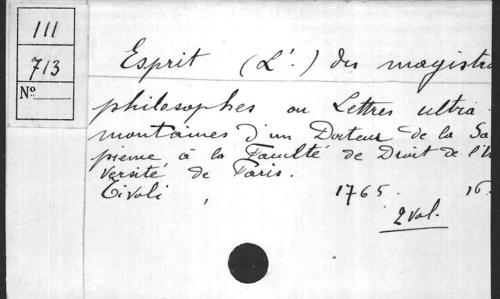 111
713
No
Esprit (L'.) des magistra
philosophes ou Lettres ultra
montaines d'un Docteur de la Sa
pience, à la Faculté de Droit de l'U
versité de Paris.
Tivoli, 1765. 16.
2 vol.